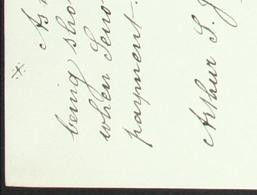 * As
being sho
when Sen
payment.
Arthur S. J